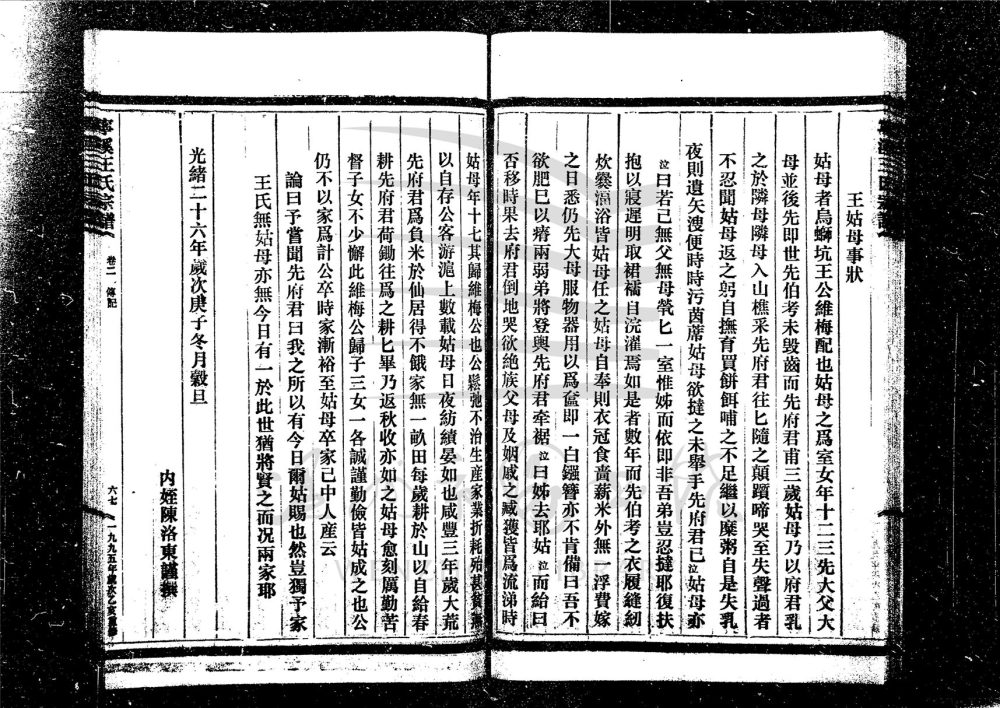 王姑母事狀
姑母者烏螄坑王公維梅配也姑母之爲室女年十二三先大父大
母並後先即世先伯考未毀齒而先府君甫三歲姑母乃以府君乳
之於隣母隣母入山樵采先府君往匕隨之顛躓啼哭至失聲過者
不忍聞姑母返之躬自撫育買餅餌哺之不足繼以糜粥自是失乳
夜則遺矢溲便時時污茵蓆姑母欲撻之未舉手先府君已泣姑母亦
泣曰若已無父無母煢匕一室惟姊而依即非吾弟豈忍撻耶復扶
抱以寢遲明取裙襦自浣濯焉如是者數年而先伯考之衣履縫紉
炊爨湢浴皆姑母任之姑母自奉則衣冠食啬薪米外無一浮費嫁
之日悉仍先大母服物器用以爲奩即一白鏹簪亦不肯備曰吾不
欲肥巳以瘠兩弱弟將登輿先府君牽裾泣曰姊去耶姑泣而紿曰
否移時果去府君倒地哭欲絶族父母及姻戚之臧獲皆爲流涕時
姑母年十七其歸維梅公也公鬆弛不治生産家業折耗殆甚貧無
以自存公客游滬上數載姑母日夜紡績晏如也咸豐三年歲大荒
先府君爲負米於仙居得不餓家無一畝田每歲耕於山以自給春
耕先府君荷鋤往爲之耕匕畢乃返秋收亦如之姑母愈刻厲勤苦
督子女不少懈此維梅公歸子三女一各誠謹勤儉皆姑成之也公
仍不以家爲計公卒時家漸裕至姑母卒家已中人産云
論曰予嘗聞先府君曰我之所以有今日爾姑賜也然豈獨予家
王氏無姑母亦無今日有一於此世猶將賢之而况兩家耶
内姪陳洛東謹撰
光緒二十六年歲次庚子冬月穀旦
溪王氏宗譜
卷二 傳記
六七
一九九五年歲次乙亥重修